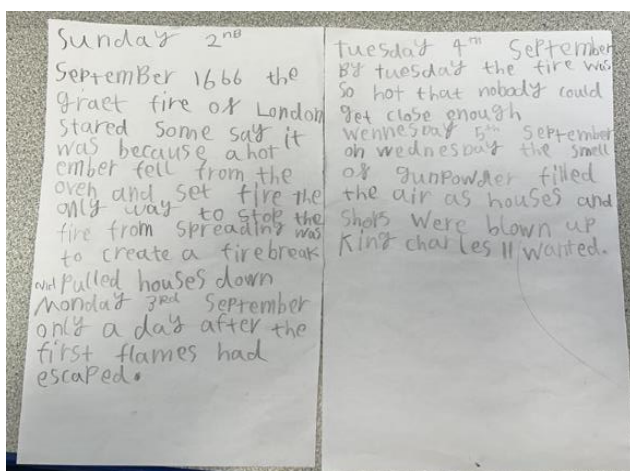 Sunday 2nd
September 1666 the
graet fire of London
stared some say it
was because a hot
ember fell from the
oven and set fire the
only way to stop the
fire from spreading was
to create a firebreak
pulled houses down
Monday 3rd September
only a day after the
first flames had
escaped.
tuesday 4th September
By tuesday the fire was
so hot that nobody could
get close enough
wennesday 5th September
on wednesday the smell
of gunpowder filled
the air as houses and
shops were blown up
King charles II wanted.